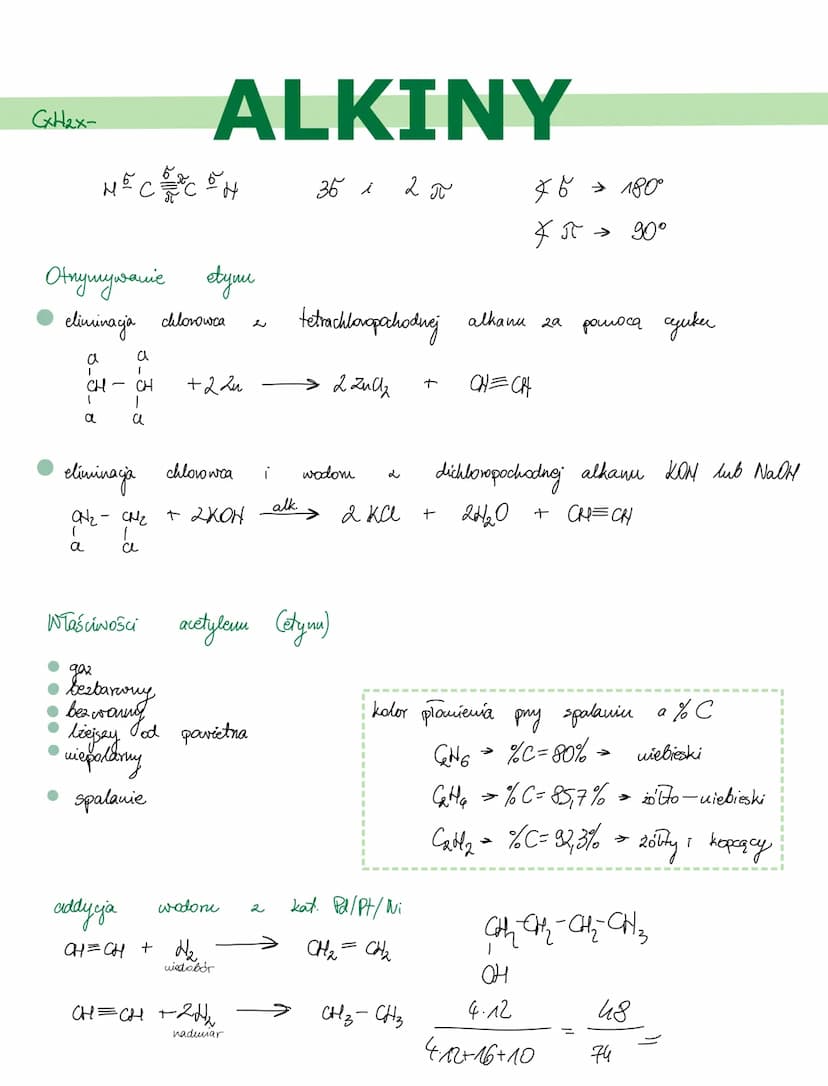 ALKINY
CxH2x-
H σ C ≡ C σ H 3σ i 2π ∡ σ → 180°
∡ π → 90°
Otrzymywanie etynu
eliminacja chlorowca z tetrachloropochodnej alkanu za pomocą cynku
Cl Cl
CH – CH + 2 Zn → 2 ZnCl2 + CH≡CH
Cl Cl
eliminacja chlorowca i wodoru z dichloropochodnej alkanu KOH lub NaOH
CH2 – CH2 + 2KOH alk. → 2 KCl + 2H2O + CH≡CH
Cl Cl
Właściwości acetylenu (etynu)
gaz
bezbarwny
bezwonny
lżejszy od powietrza
niepolarny
spalanie
kolor płomienia przy spalaniu a %C
C2H6 → %C = 80% → niebieski
C2H4 → %C = 85,7% → żółto – niebieski
C2H2 → %C = 92,3% → żółty i kopcący
addycja wodoru z kat. Pd/Pt/Ni
CH≡CH + H2 → CH2 = CH2
niedobór
CH≡CH + 2H2 → CH3 – CH3
nadmiar
CH2-CH2-CH2-CH3
OH
4·12 / 4·12+16+10 = 48 / 74 =